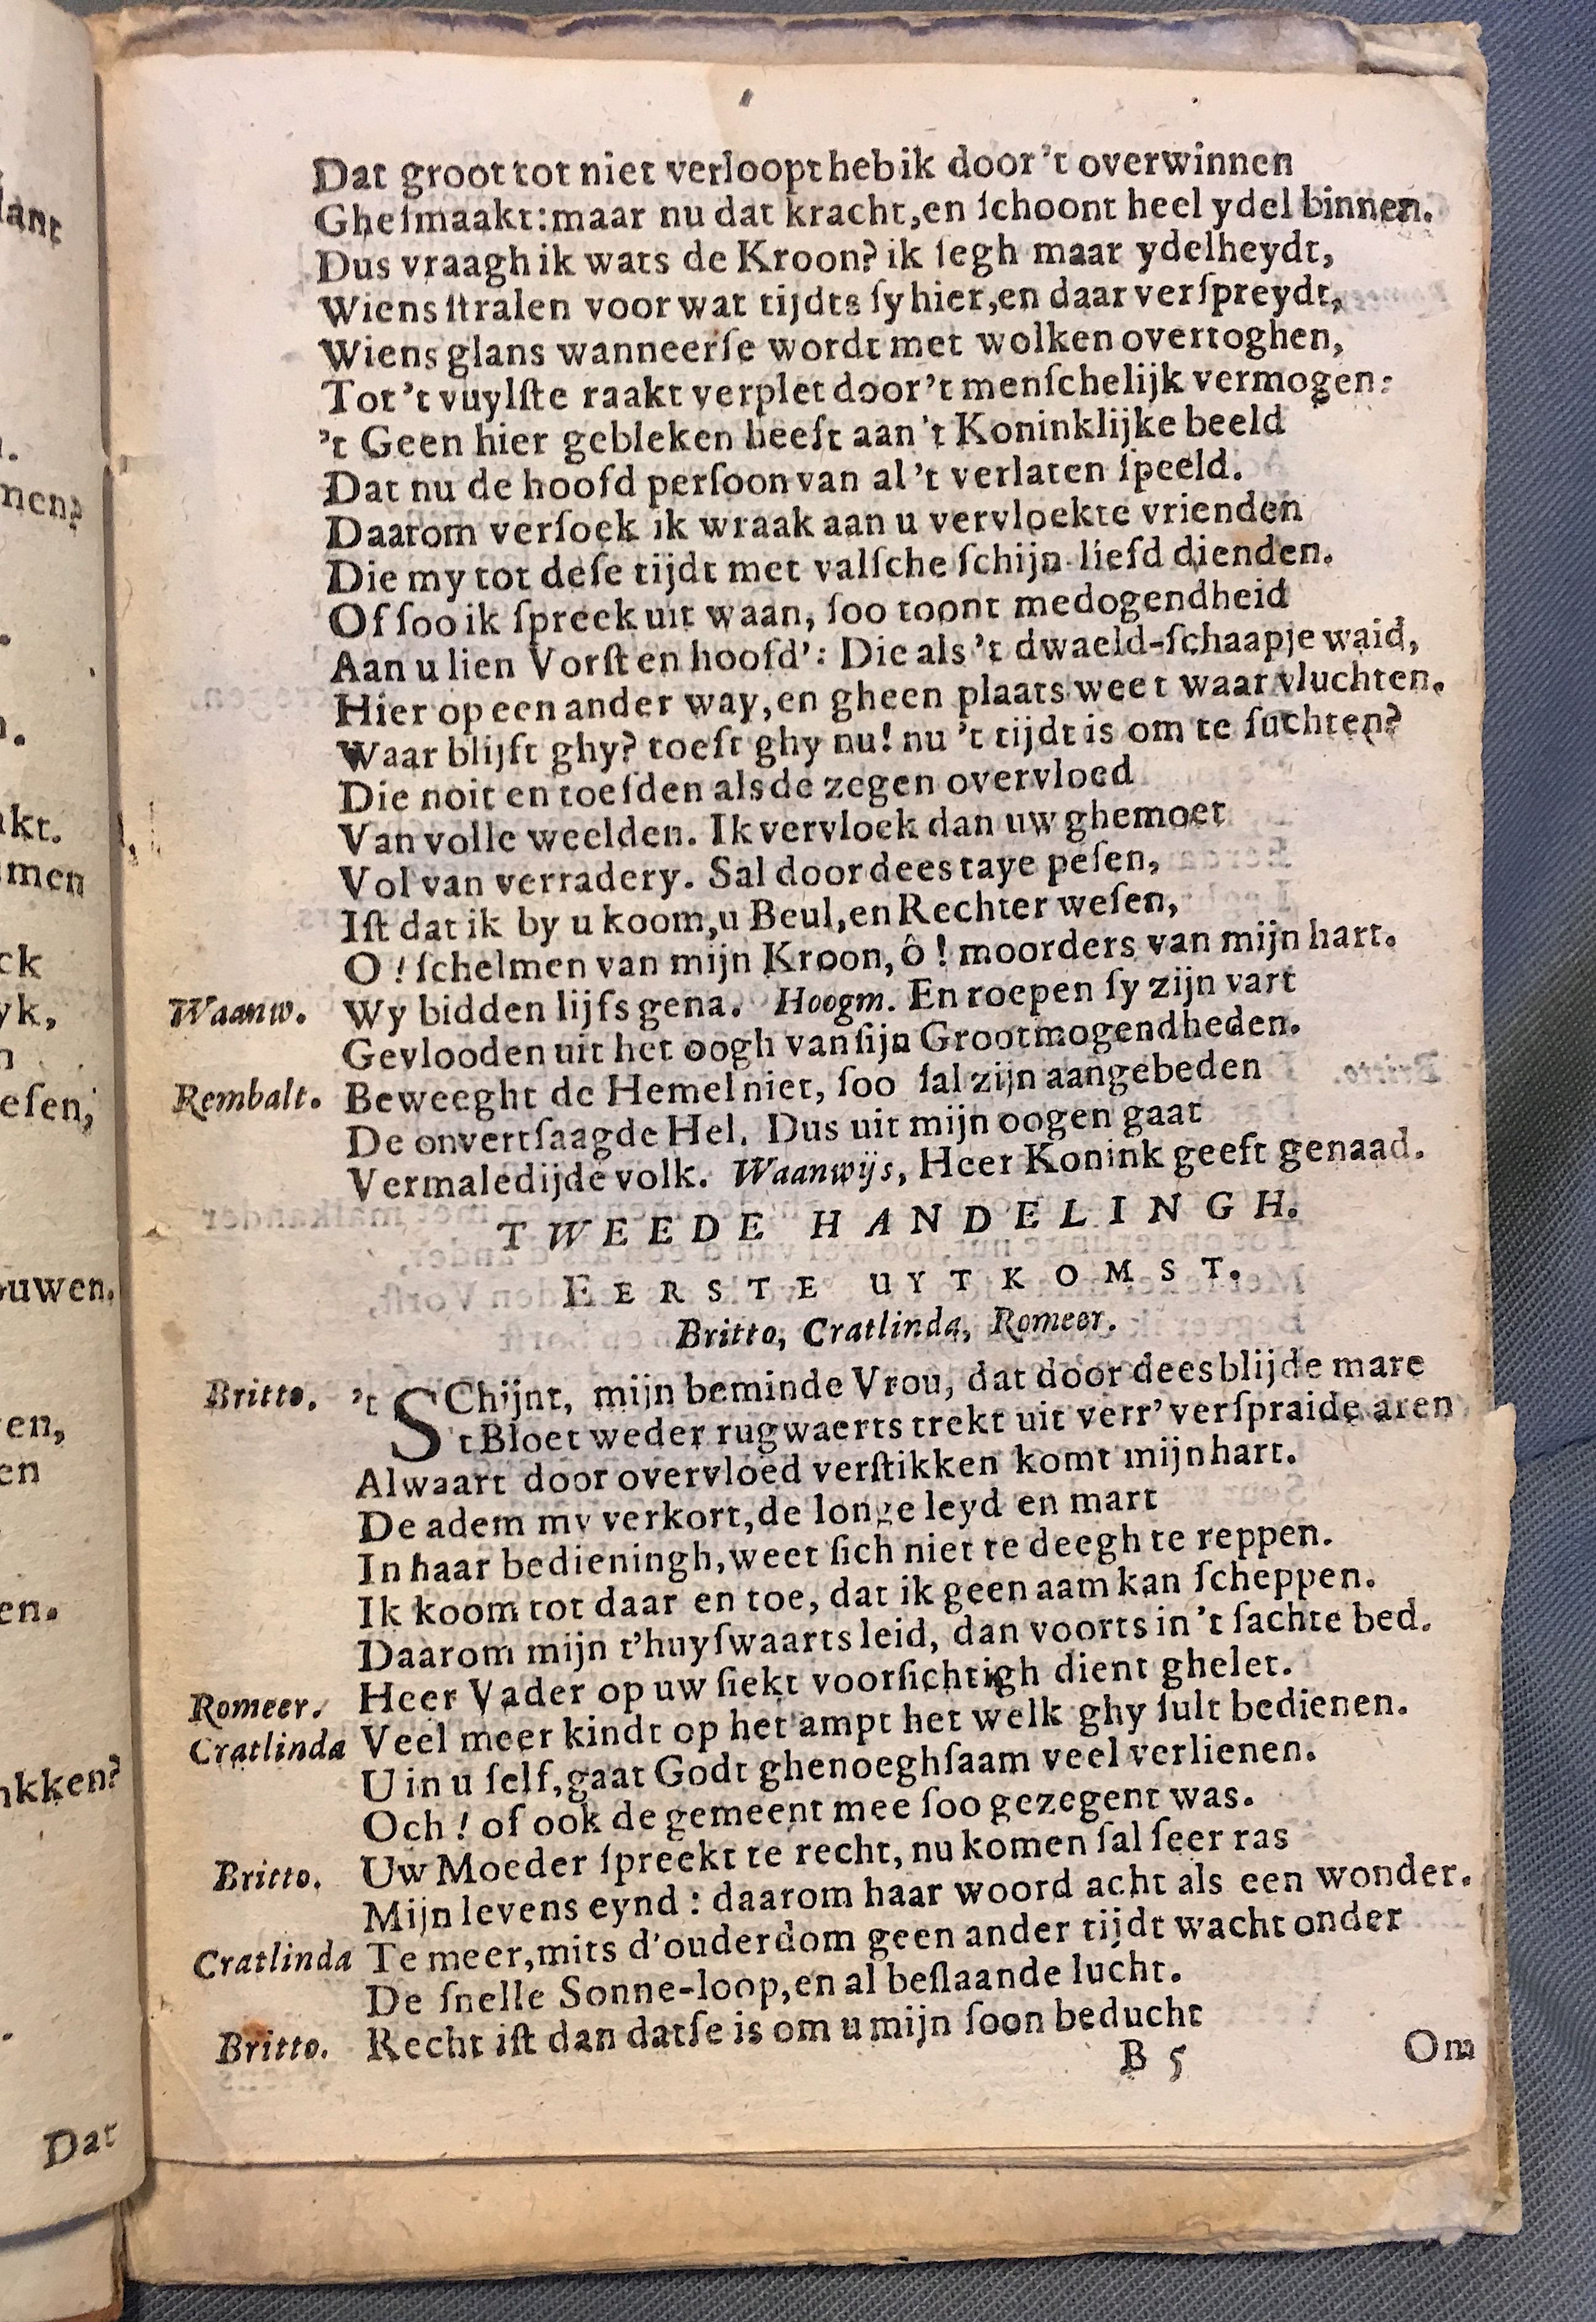 Dat groot tot niet verloopt heb ik door 't overwinnen
Gheſmaakt: maar nu dat kracht, en ſchoont heel ydel binnen.
Dus vraagh ik wats de Kroon? ik ſegh maar ydelheydt,
Wiens ſtralen voor wat tijdts ſy hier, en daar verſpreydt,
Wiens glans wanneerſe wordt met wolken overtoghen,
Tot 't vuylſte raakt verplet door 't menſchelijk vermogen:
't Geen hier gebleken heeft aan 't Koninklijke beeld
Dat nu de hoofd perſoon van al 't verlaten ſpeeld.
Daarom verſoek ik wraak aan u vervloekte vrienden
Die my tot deſe tijdt met valſche ſchijn-liefd dienden.
Of ſoo ik ſpreek uit waan, ſoo toont medogendheid
Aan u lien Vorſt en hoofd': Die als 't dwaeld-ſchaapje waid,
Hier op een ander way, en gheen plaats weet waar vluchten.
Waar blijft ghy? toeft ghy nu! nu 't tijdt is om te ſuchten?
Die noit en toefden als de zegen overvloed
Van volle weelden. Ik vervloek dan uw ghemoet
Vol van verradery. Sal door dees taye peſen,
Iſt dat ik by u koom, u Beul, en Rechter weſen,
O! ſchelmen van mijn Kroon, ô! moorders van mijn hart.
Waanw. Wy bidden lijfs gena. Hoogm. En roepen ſy zijn vart
Gevlooden uit het oogh van ſijn Grootmogendheden.
Rembalt. Beweeght de Hemel niet, ſoo ſal zijn aangebeden
De onvertſaagde Hel. Dus uit mijn oogen gaat
Vermaledijde volk. Waanwijs, Heer Konink geeft genaad.
TWEEDE HANDELINGH.
EERSTE UYTKOMST.
Britto, Cratlinda, Romeer.
Britto. 't SChijnt, mijn beminde Vrou, dat door dees blijde mare
't Bloet weder rugwaerts trekt uit verr' verſpraide aren
Alwaart door overvloed verſtikken komt mijn hart.
De adem my verkort, de longe leyd en mart
In haar bedieningh, weet ſich niet te deegh te reppen.
Ik koom tot daar en toe, dat ik geen aam kan ſcheppen.
Daarom mijn t'huyſwaarts leid, dan voorts in 't ſachte bed.
Romeer. Heer Vader op uw ſiekt voorſichtigh dient ghelet.
Cratlinda Veel meer kindt op het ampt het welk ghy ſult bedienen.
U in u ſelf, gaat Godt ghenoeghſaam veel verlienen.
Och! of ook de gemeent mee ſoo gezegent was.
Britto. Uw Moeder ſpreekt te recht, nu komen ſal ſeer ras
Mijn levens eynd: daarom haar woord acht als een wonder.
Cratlinda Te meer, mits d'ouderdom geen ander tijdt wacht onder
De ſnelle Sonne-loop, en al beſlaande lucht.
Britto. Recht iſt dan datſe is om u mijn ſoon beducht
B 5 Om